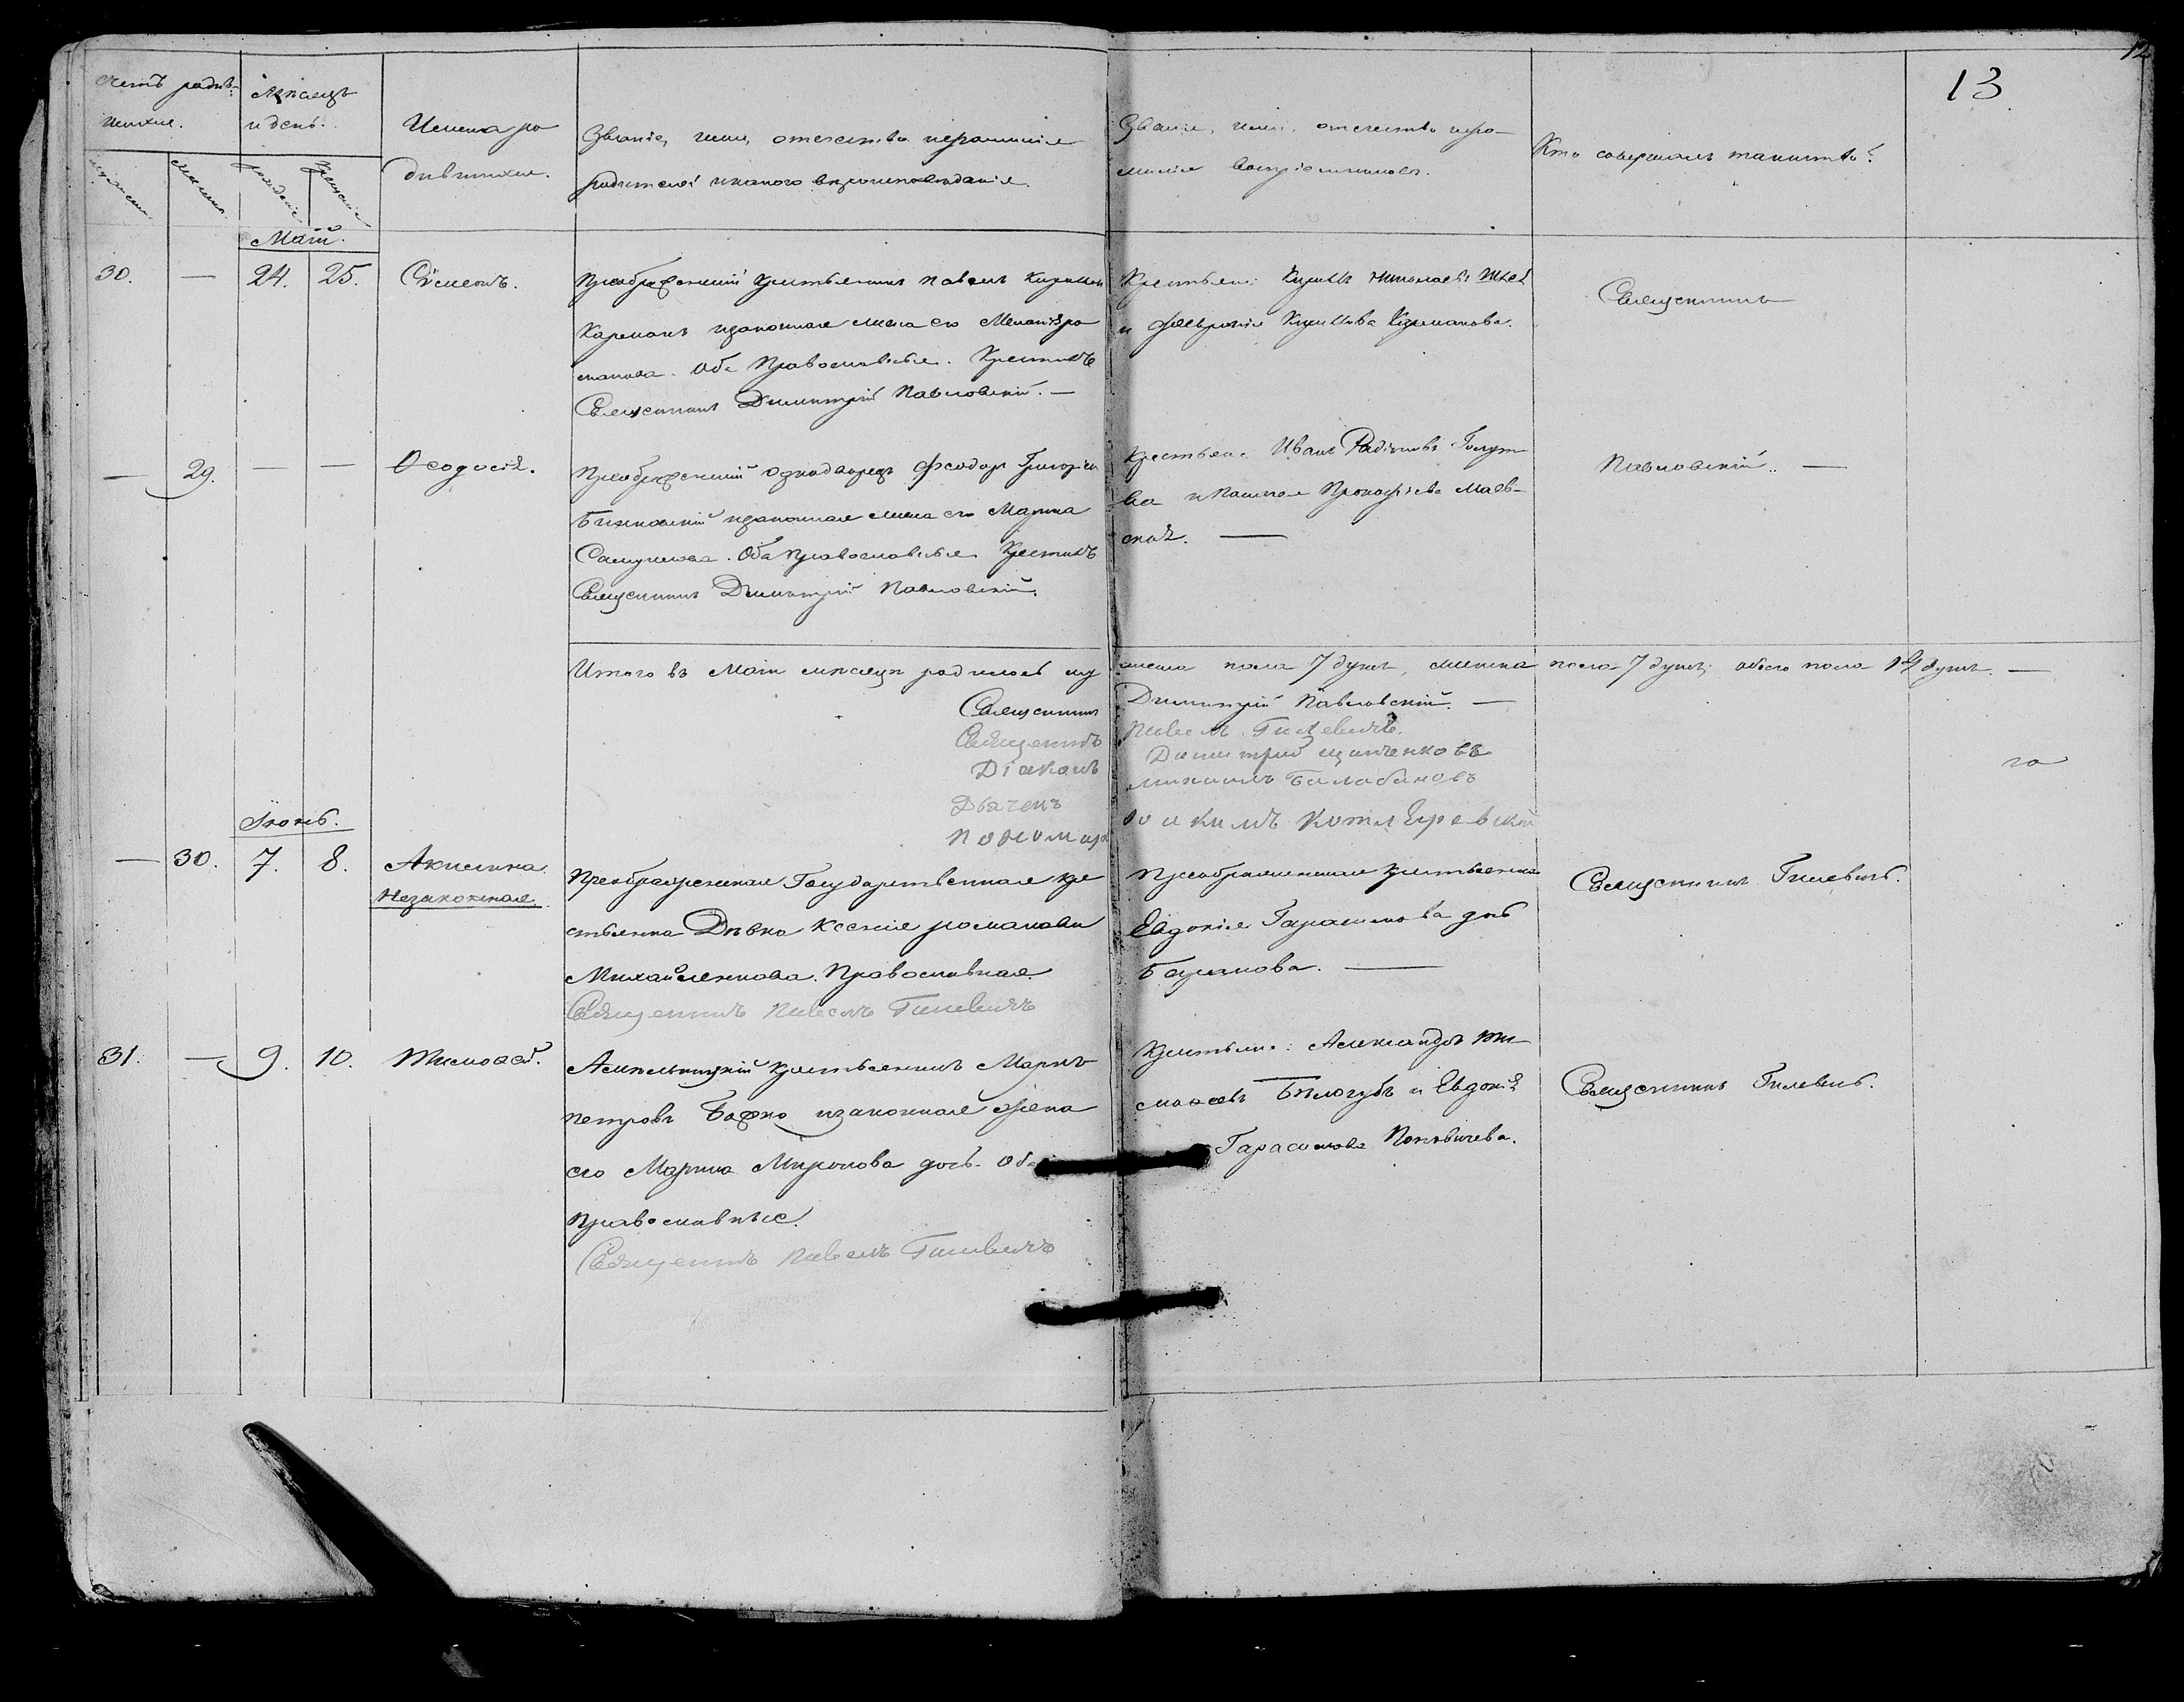 13
12
Счетъ родив-
шихся.
Мѣсяцъ
и день.
Имена ро
дившихся.
Званіе, имя, отечество и фамилія
родителей и какого вѣроисповѣданія.
Званіе, имя, отечество и фа-
милія воспріемниковъ.
Кто совершалъ таинство?
рожденіе
крещеніе
Май.
30. — 24. 25. Сѵмеонъ.
Преображенскій крестьянинъ Павелъ
и законная жена его
Оба Православные. Крестилъ
Священникъ Димитрій Павловскій. —
Крестьяне: Николаевъ
и Февронія
Священникъ
— 29. — — Ѳеодосія.
Преображенскій однодворецъ Феодоръ
и законная жена его Марина
Самуилова. Оба Православные. Крестилъ
Священникъ Димитрій Павловскій.
Крестьяне Иванъ Радіоновъ
ва и Прокофіева Маев-
ская. —
Павловскій. —
Итого въ Маѣ мѣсяцѣ родилось му
жеска пола 7 душъ, женска пола 7 душъ, обоего пола 14 душъ. —
Священникъ Димитрій Павловскій. —
Священникъ Павелъ Гилевичъ.
Діаконъ Димитрій
Дьячекъ Михаилъ Балабановъ
Пономарь Іоакимъ Котляревскій
Іюнь.
— 30. 7. 8. Акилина.
Незаконная.
Преображенская Государственная кре
стьянка Дѣвка Ксенія Романова
Михайленкова. Православная.
Священникъ Павелъ Гилевичъ
Преображенская крестьянка
Евдокія Гарасимова дочь
Баранова. —
Священникъ Гилевичъ.
31. — 9. 10. Тимоѳей.
крестьянинъ Маркъ
Петровъ Бажко и законная жена
его Марина Миронова дочь. Оба
Православные.
Священникъ Павелъ Гилевичъ
Крестьяне: Александръ Ти-
моѳеевъ Бѣлогубъ и Евдокія
Гарасимова Поповичева.
Священникъ Гилевичъ.